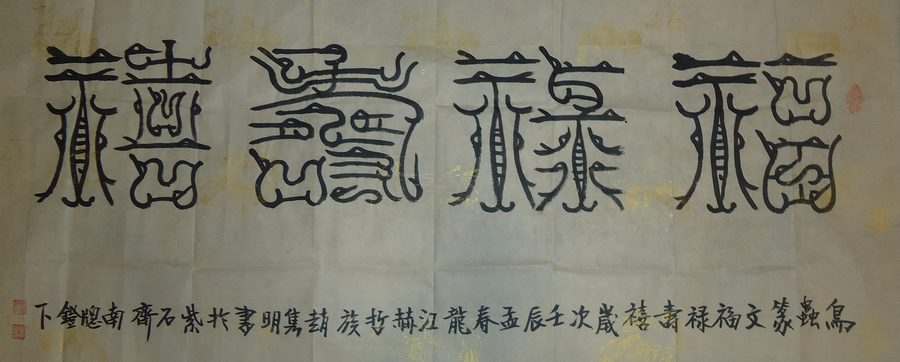 福祿壽禧
鳥蟲篆文福禄壽禧歲次壬辰孟春龍江赫哲族趙隽明書於紫石齊南牕鐙下